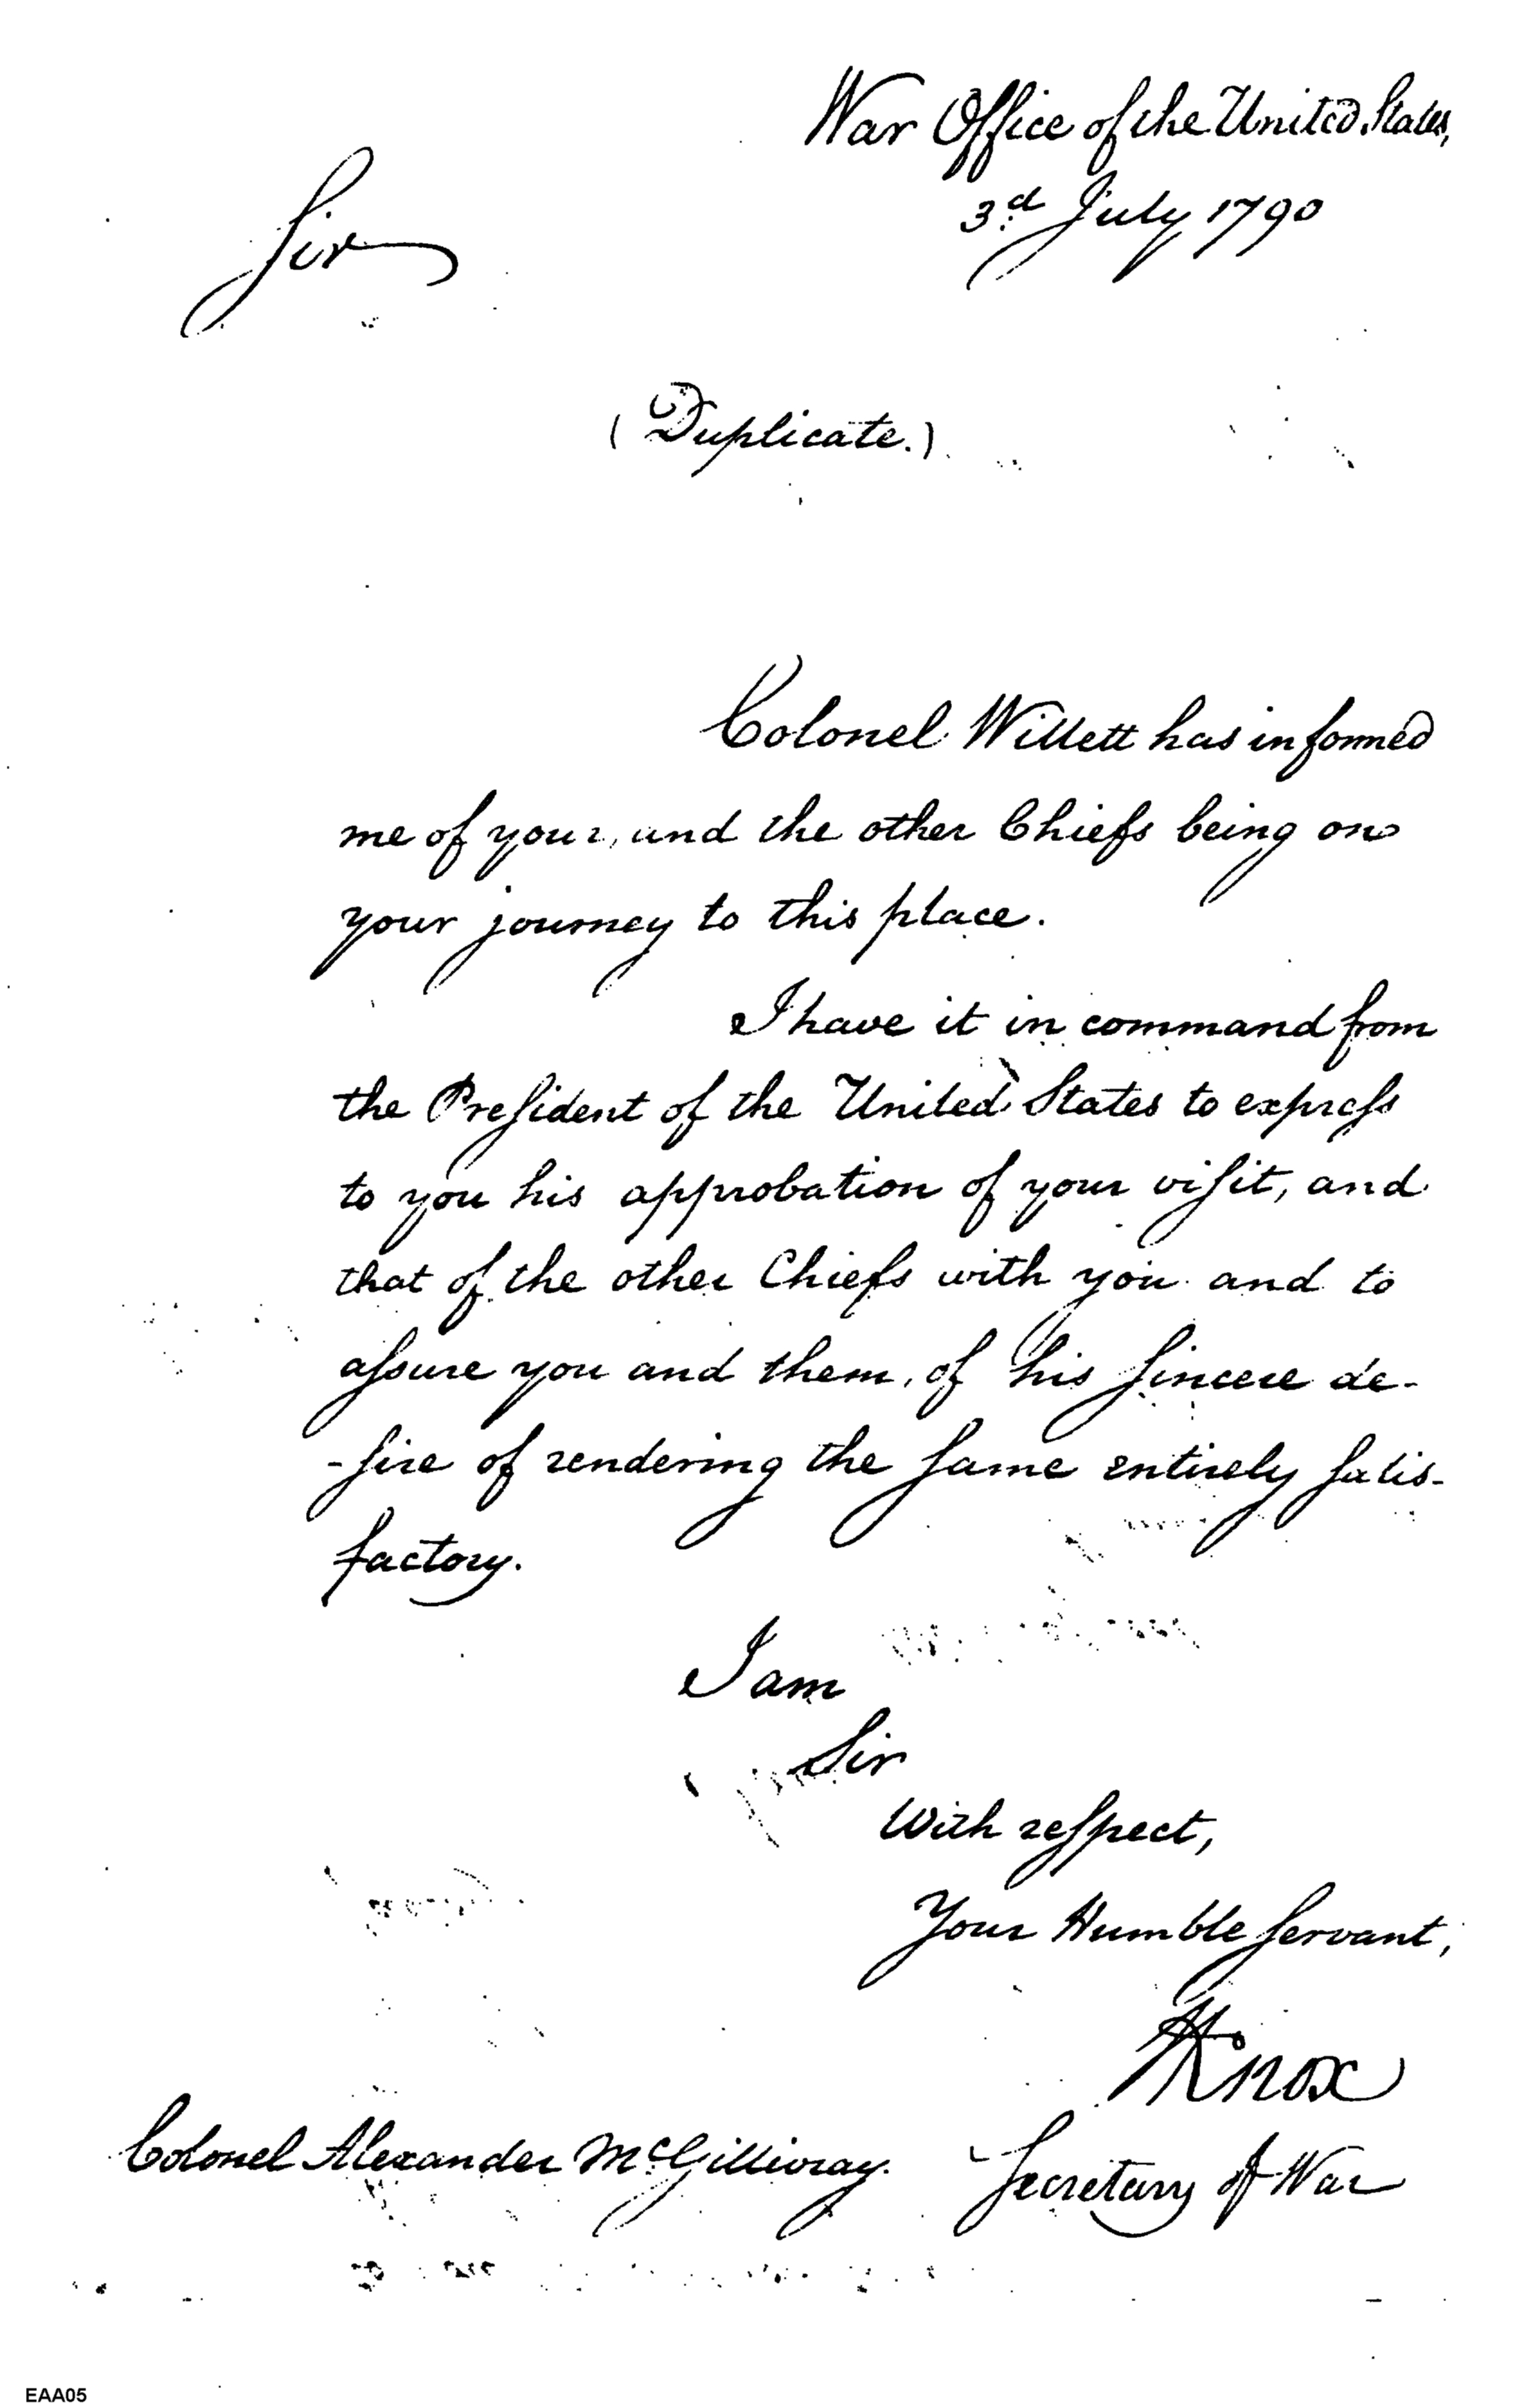 War Office of the United States,
3.d July 1790
Sir
(Duplicate.)
Colonel Willett has informed
me of your, and the other Chiefs being on
your journey to this place.
I have it in command from
the President of the United States to express
to you his approbation of your visit, and
that of the other Chiefs with you and to
assure you and them, of his sincere de-
-sire of rendering the same entirely satis-
factory.
I am
Sir
With respect,
Your Humble servant,
HKnox
Colonel Alexander McGillivray. Secretary of War
EAA05